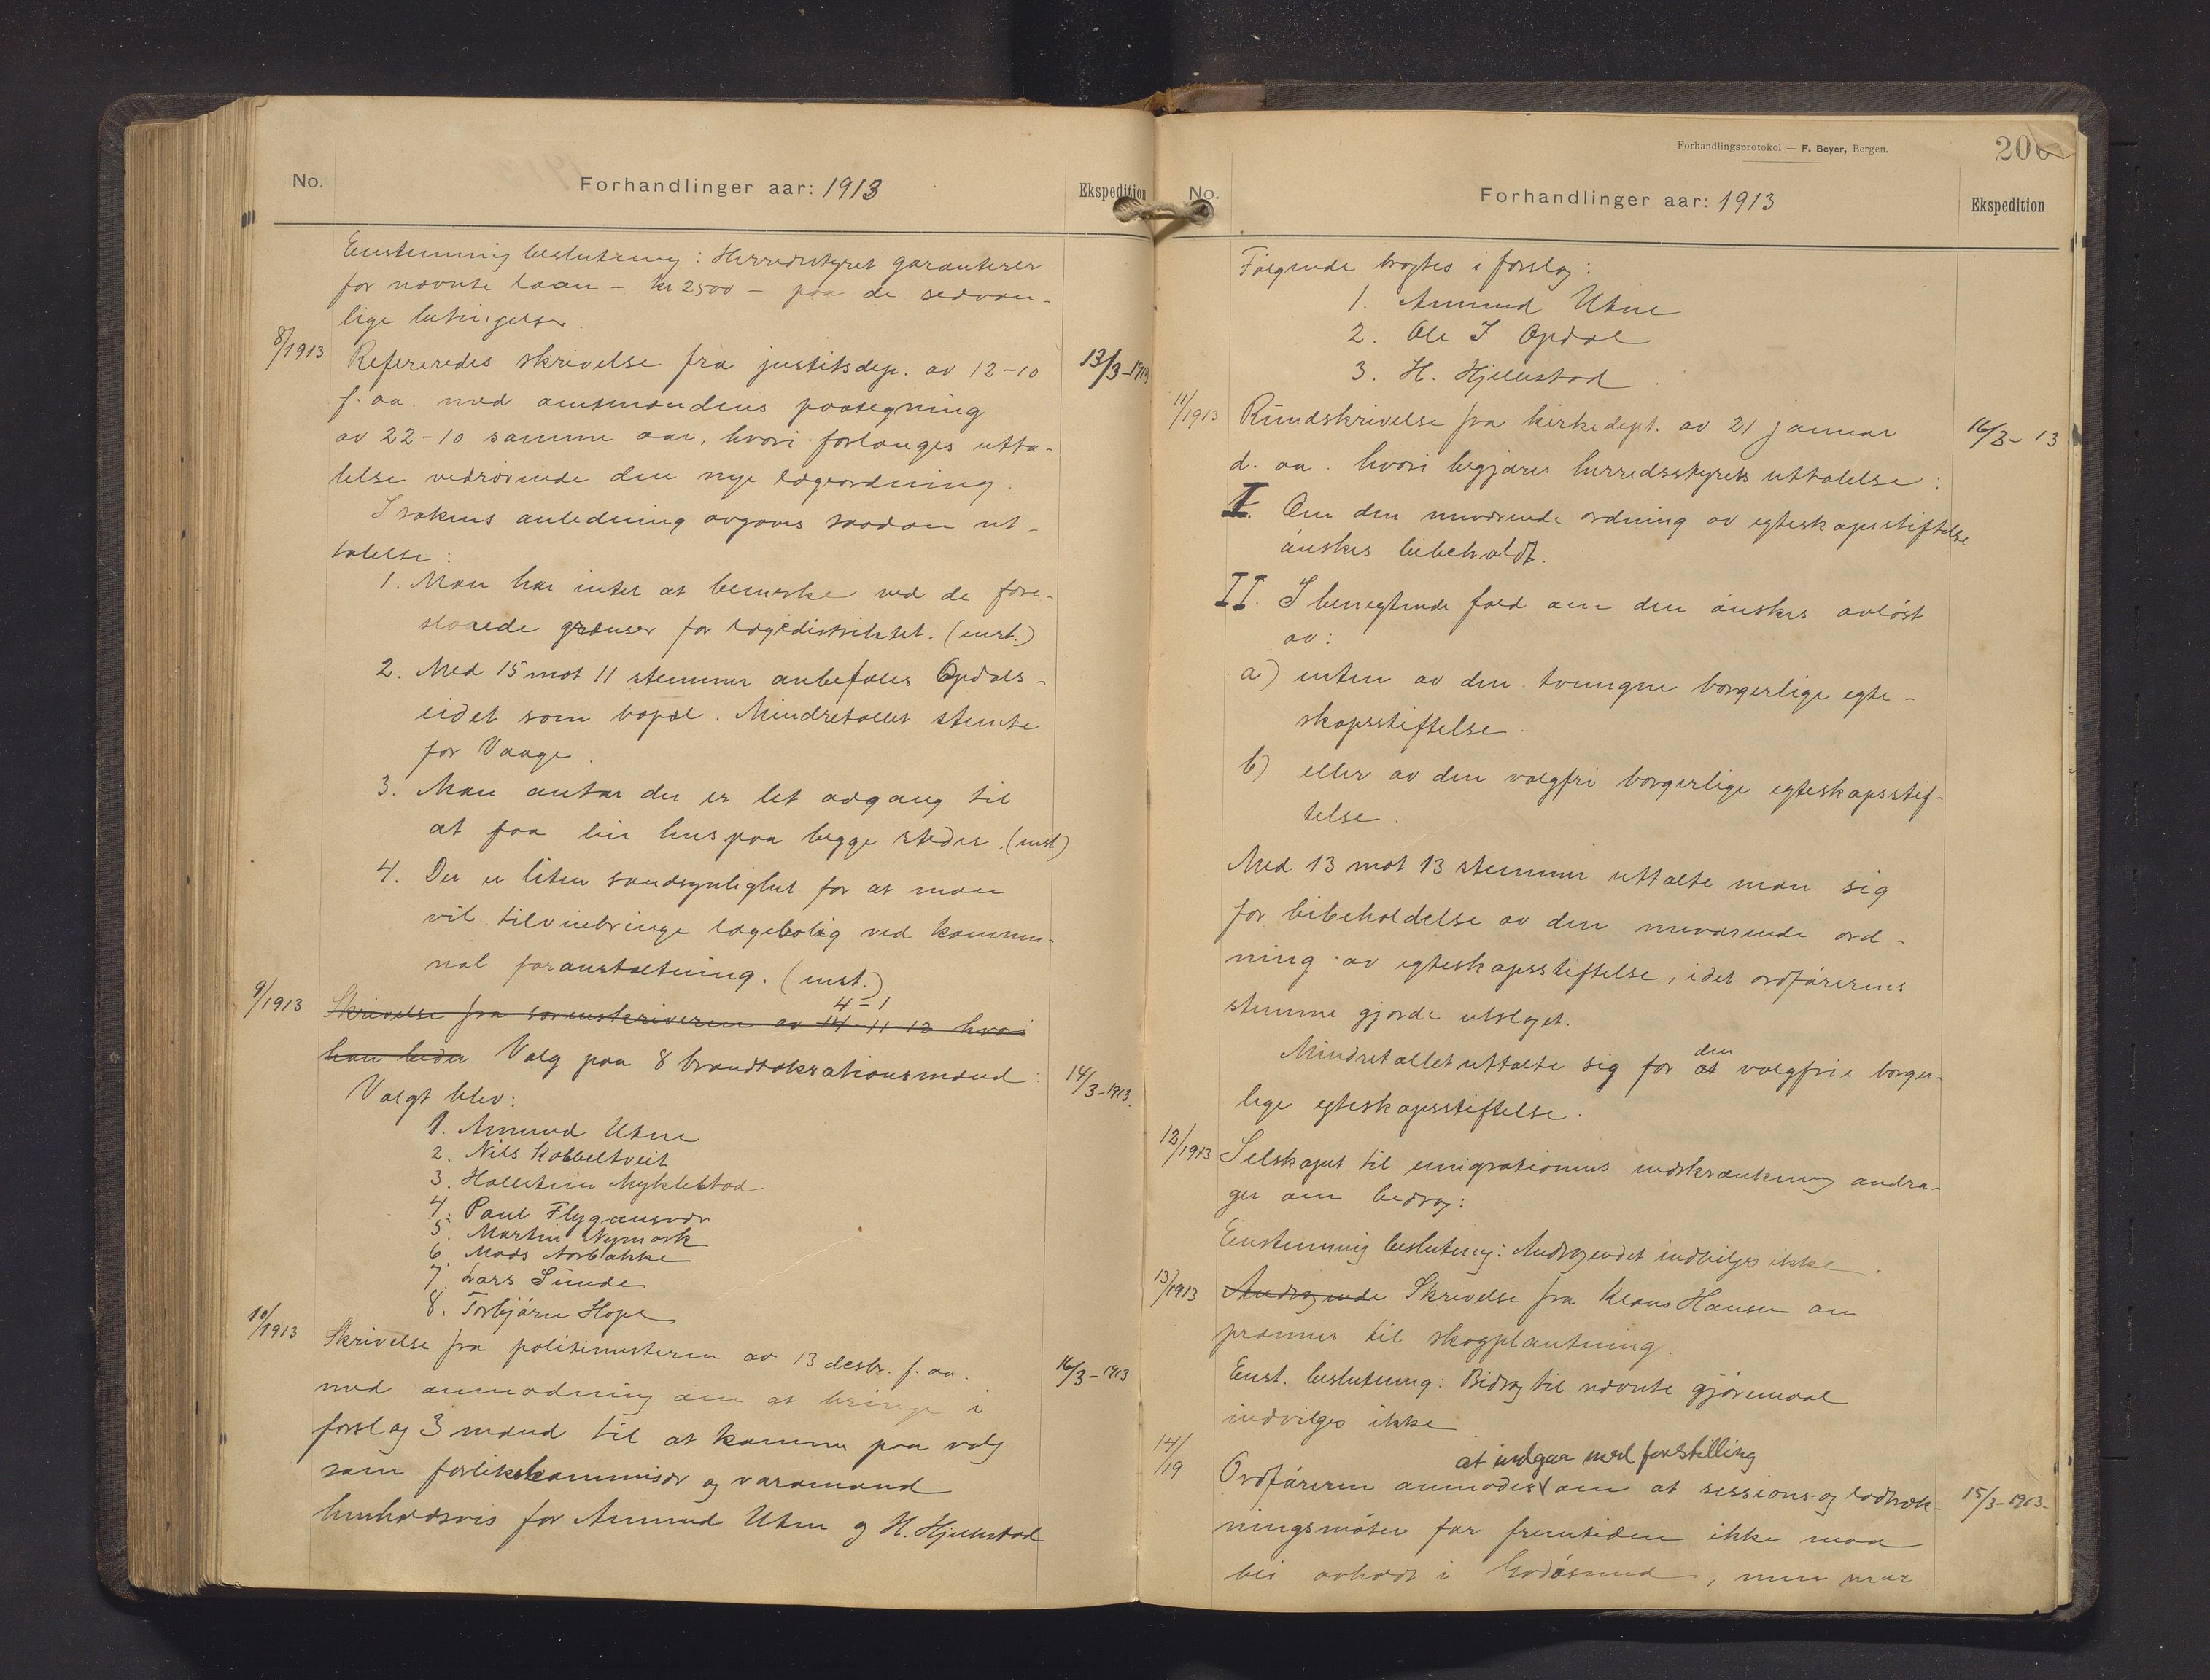 No.
Forhandlinger aar: 1913
Ekspedition
Enstemmig beslutning: Herredsstyret garanterer
for nævnte laan - kr 2500 - paa de sedvan-
lige betingelser.
8/1913 Refereredes skrivelse fra justitsdep. av 12-10 13/3-1913
f. aa. med amtmandens paategning
av 22-10 samme aar, hvori forlanges utta-
lelse vedrørende den nye lægeordning.
I sakens anledning avgaves saadan ut-
talelse:
1. Man har intet at bemerke ved de fore-
slaaede grænser for lægedistriktet. (enst.)
2. Med 15 mot 11 stemmer anbefales Opdals-
eidet som bopæl. Mindretallet stemte
for Vaage.
3. Man antar der er let adgang til
at faa leie hus paa begge steder. (enst)
4. Der er liten sandsynlighet for at man
vil tilveiebringe lægebolig ved kommu-
nal foranstaltning. (enst.)
4-1
9/1913 Skrivelse fra sorenskriveren av 14-11-12 hvori
han beder Valg paa 8 brandtakstationsmænd 14/3-1913.
Valgt blev:
1. Amund Utne
2. Nils Kobbeltveit
3. Hallstein Myklestad
4. Paul Flygansvær
5. Martin Nymark
6. Mads Norbakke
7. Lars Sunde
8. Torbjørn Hope
10/1913 Skrivelse fra politimesteren av 13 desbr. f. aa. 16/3-1913
med anmodning om at bringe i
forslag 3 mænd til at komme paa valg
som forlikskommissær og varamand
henholdsvis for Amund Utne og H. Hjellestad
Forhandlingsprotokol — F. Beyer, Bergen.
206
No.
Forhandlinger aar: 1913
Ekspedition
Følgende bragtes i forslag:
1. Amund Utne
2. Ole I Opdal
3. H. Hjellestad
11/1913 Rundskrivelse fra kirkedept. av 21 januar 16/3-13
d. aa. hvori begjæres herredsstyrets uttalelse:
I. Om den nuværende ordning av egteskapsstiftelse
ønskes bibeholdt.
II. I benegtende fald om den ønskes avløst
av:
a) enten av den tvungne borgerlige egte-
skapsstiftelse.
b) eller av den valgfri borgerlige egteskapsstif-
telse.
Med 13 mot 13 stemmer uttalte man sig
for bibeholdelse av den nuværende ord-
ning av egteskapsstiftelse, idet ordførerens
stemme gjorde utslaget.
den
Mindretallet uttalte sig for at valgfrie borger-
lige egteskapsstiftelse.
12/1913 Selskapet til emigrationens indskrænkning andra-
ger om bidrag:
Enstemmig beslutning: Andragendet indvilges ikke.
13/1913 Andragende Skrivelse fra Klaus Hansen om
præmier til skogplantning.
Enst. beslutning: Bidrag til nævnte gjøremaal
indvilges ikke
at indgaa med forestilling
14/19 Ordføreren anmodes om at sessions- og lodtræk- 15/3-1913-
ningsmøter for fremtiden ikke maa
bli avholdt i Godøsund, men maa